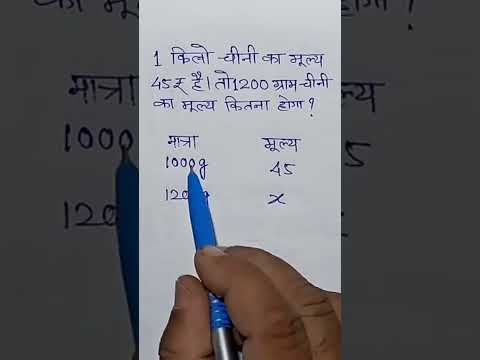 1 किलो चीनी का मूल्य
45₹ है। तो 1200 ग्राम चीनी
का मूल्य कितना होगा?
मात्रा मूल्य
1000g 45
x